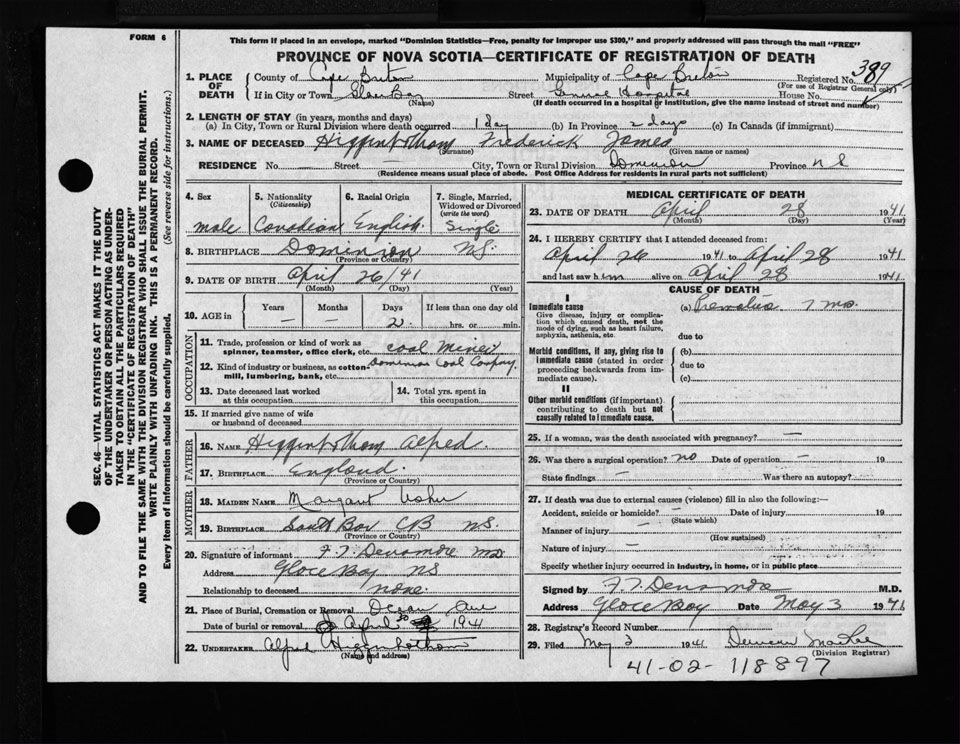 FORM 6
This form if placed in an envelope, marked "Dominion Statistics—Free, penalty for improper use $300," and properly addressed will pass through the mail "FREE"
PROVINCE OF NOVA SCOTIA—CERTIFICATE OF REGISTRATION OF DEATH
SEC. 46—VITAL STATISTICS ACT MAKES IT THE DUTY
OF THE UNDERTAKER OR PERSON ACTING AS UNDER-
TAKER TO OBTAIN ALL THE PARTICULARS REQUIRED
IN THE "CERTIFICATE OF REGISTRATION OF DEATH"
AND TO FILE THE SAME WITH THE DIVISION REGISTRAR WHO SHALL ISSUE THE BURIAL PERMIT.
WRITE PLAINLY WITH UNFADING INK. THIS IS A PERMANENT RECORD.
Every item of information should be carefully supplied. (See reverse side for instructions.)
1. PLACE OF DEATH County of Cape Breton Municipality of Cape Breton Registered No. 389
(For use of Registrar General only)
If in City or Town Glace Bay (Name) Street General Hospital House No.
(If death occurred in a hospital or institution, give the name instead of street and number)
2. LENGTH OF STAY (in years, months and days)
(a) In City, Town or Rural Division where death occurred 1 day (b) In Province 2 days (c) In Canada (if immigrant)
3. NAME OF DECEASED Higginbotham Frederick James
(Surname) (Given name or names)
RESIDENCE No. Street City, Town or Rural Division Dominion Province N S
(Residence means usual place of abode. Post Office Address for residents in rural parts not sufficient)
4. Sex 5. Nationality (Citizenship) 6. Racial Origin 7. Single, Married, Widowed or Divorced (write the word)
male Canadian English Single
8. BIRTHPLACE Dominion NS.
(Province or Country)
9. DATE OF BIRTH April 26/41
(Month) (Day) (Year)
10. AGE in Years Months Days If less than one day old
— — 2 hrs. or min.
OCCUPATION
11. Trade, profession or kind of work as spinner, teamster, office clerk, etc. coal miner
12. Kind of industry or business, as cotton-mill, lumbering, bank, etc. Dominion Coal Company.
13. Date deceased last worked at this occupation 14. Total yrs. spent in this occupation
15. If married give name of wife or husband of deceased
FATHER
16. NAME Higginbotham Alfred.
17. BIRTHPLACE England.
(Province or Country)
MOTHER
18. MAIDEN NAME Margaret
19. BIRTHPLACE CB NS.
(Province or Country)
20. Signature of informant MD
Address Glace Bay NS
Relationship to deceased none.
21. Place of Burial, Cremation or Removal Ocean
Date of burial or removal April 30 1941
22. UNDERTAKER Alfred Higginbotham
(Name and address)
MEDICAL CERTIFICATE OF DEATH
23. DATE OF DEATH April 28 1941
(Month) (Day) (Year)
24. I HEREBY CERTIFY that I attended deceased from:
April 26 1941 to April 28 1941
and last saw him alive on April 28 1941
CAUSE OF DEATH
I
Immediate cause (a) 7 mo.
Give disease, injury or complication which caused death, not the mode of dying, such as heart failure, asphyxia, asthenia, etc. due to
Morbid conditions, if any, giving rise to immediate cause (stated in order proceeding backwards from immediate cause). (b) due to (c)
II
Other morbid conditions (if important) contributing to death but not causally related to immediate cause.
25. If a woman, was the death associated with pregnancy? —
26. Was there a surgical operation? no Date of operation — 19
State findings — Was there an autopsy?
27. If death was due to external causes (violence) fill in also the following:—
Accident, suicide or homicide? — Date of injury 19
(State which)
Manner of injury —
(How sustained)
Nature of injury —
Specify whether injury occurred in industry, in home, or in public place
Signed by M.D.
Address Glace Bay Date May 3 1941
28. Registrar's Record Number
29. Filed May 2 1941
(Division Registrar)
41-02-118897